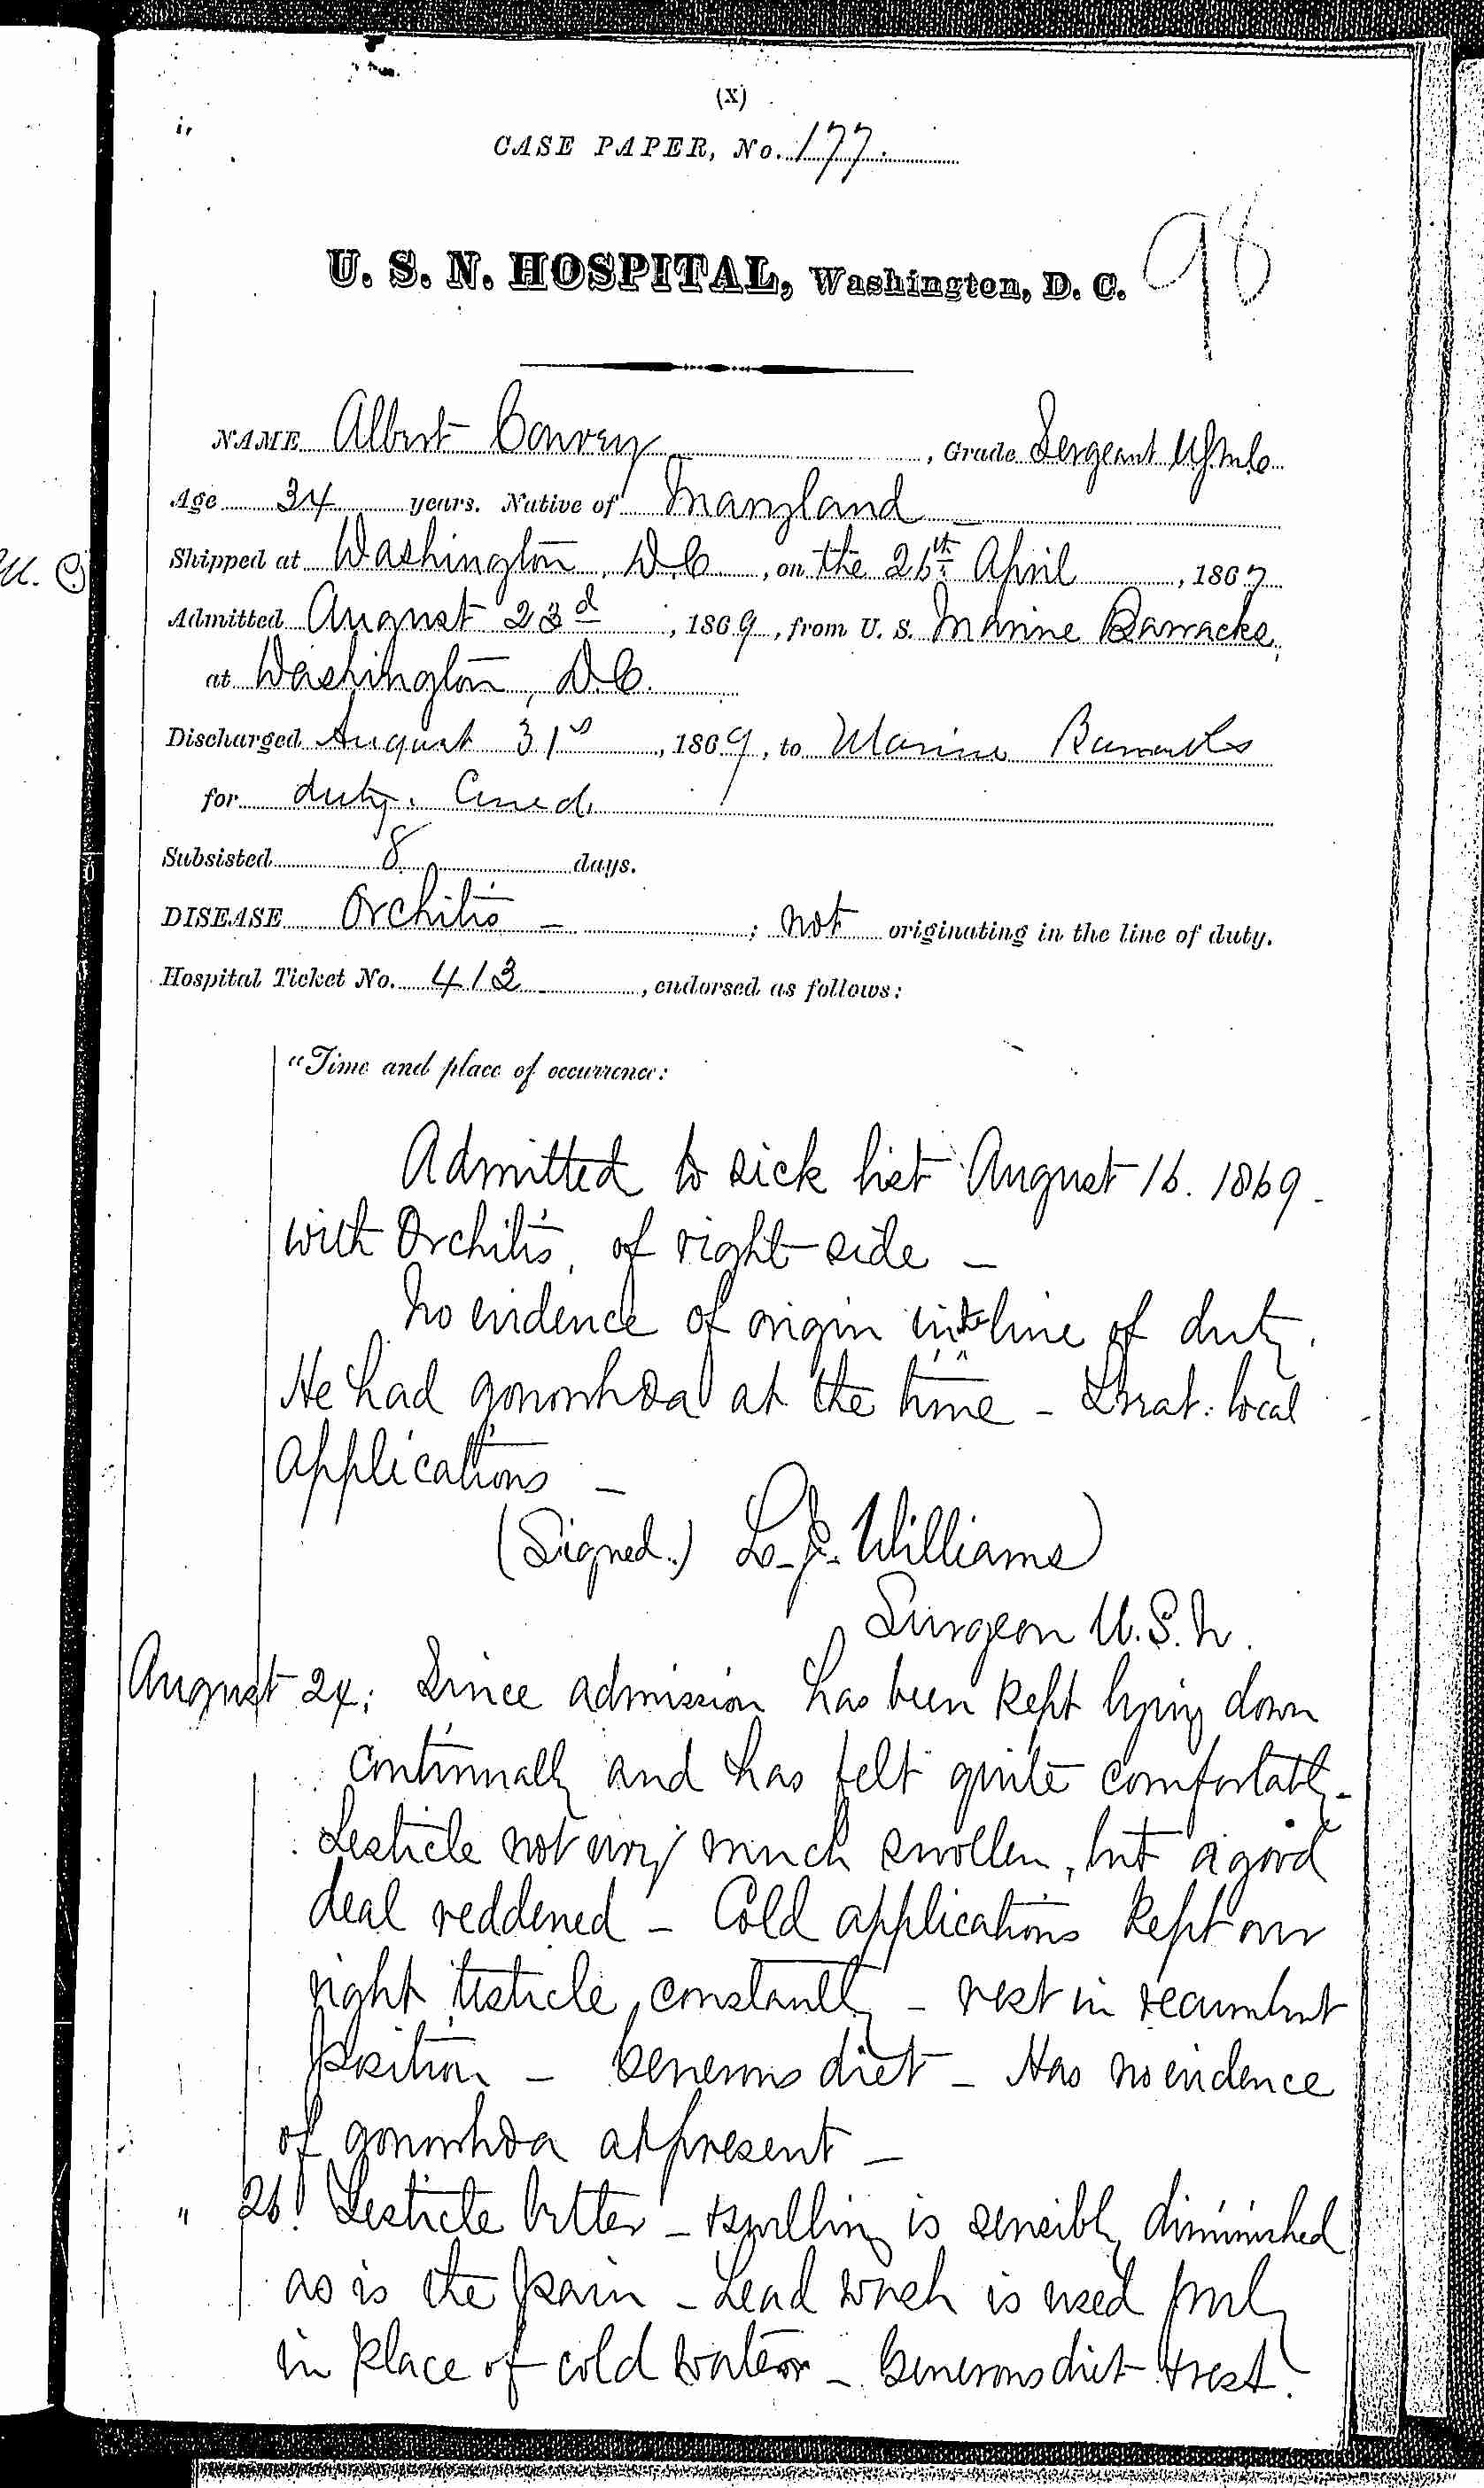 (X)
CASE PAPER, No. 177.
98
U. S. N. HOSPITAL, Washington, D. C.
NAME Albert Conrey, Grade Sergeant U.S.M.C.
Age 34 years. Native of Maryland
Shipped at Washington, D.C., on the 26th April, 1867
Admitted August 23d, 1869, from U. S. Marine Barracks,
at Washington, D.C.
Discharged August 31s, 1869, to Marine Barracks
for duty. Cured.
Subsisted 8 days.
DISEASE Orchitis – ; not originating in the line of duty.
Hospital Ticket No. 413, endorsed as follows:
"Time and place of occurrence:
Admitted to sick list August 16. 1869.
with Orchitis, of right side –
No evidence of origin in the line of duty.
He had gonorrhœa at the time – Treat: local
applications –
(Signed.) L. J. Williams)
Surgeon U.S.N.
August 24; Since admission has been kept lying down
continually and has felt quite comfortably.
Testicle not very much swollen, but a good
deal reddened – Cold applications kept over
right testicle, constantly – rest in recumbent
position – Generous diet – Has no evidence
of gonorrhœa at present –
" 26. Testicle better – swelling is sensibly diminished
as is the pain – Lead wash is used freely
in place of cold water – Generous diet & rest.